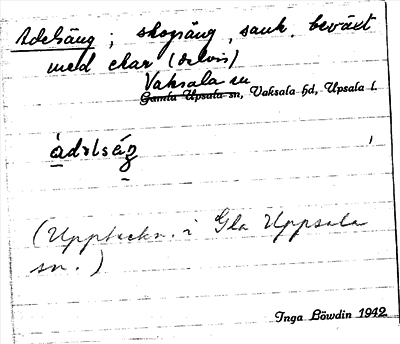 Adelsäng ; skogsäng, sank, beväxt
med ekar (delvis)
Vaksala sn
Gamla Upsala sn, Vaksala hd, Upsala l.
ádəlséŋ
(Uppteckn. i Gla Uppsala
sn.)
Inga Löwdin 1942